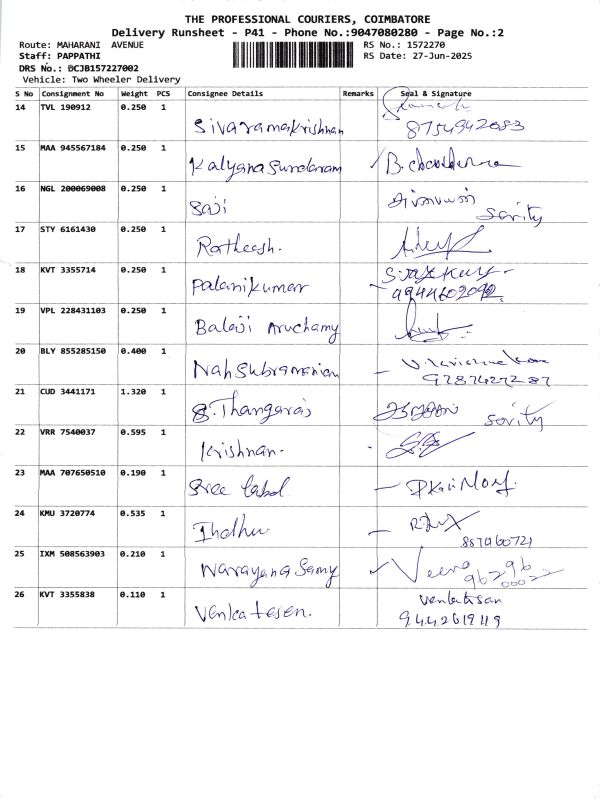 THE PROFESSIONAL COURIERS, COIMBATORE
Delivery Runsheet - P41 - Phone No.:9047080280 - Page No.:2
Route: MAHARANI AVENUE RS No.: 1572270
Staff: PAPPATHI RS Date: 27-Jun-2025
DRS No.: DCJB157227002
Vehicle: Two Wheeler Delivery
S No Consignment No Weight PCS Consignee Details Remarks Seal & Signature
14 TVL 190912 0.250 1
Sivaramakrishnan 8754942083
15 MAA 945567184 0.250 1
Kalyana Sundaram
16 NGL 200069008 0.250 1
Saji
17 STY 6161430 0.250 1
Ratheesh.
18 KVT 3355714 0.250 1
Palanikumar 9944602092
19 VPL 228431103 0.250 1
Balaji Aruchamy
20 BLY 855285150 0.400 1
21 CUD 3441171 1.320 1
22 VRR 7540037 0.595 1
Krishnan.
23 MAA 707650510 0.190 1
Sree
24 KMU 3720774 0.535 1
25 IXM 508563903 0.210 1
Narayana Samy Veera
26 KVT 3355838 0.110 1
Venkatesen. Venkatisan
9442619119